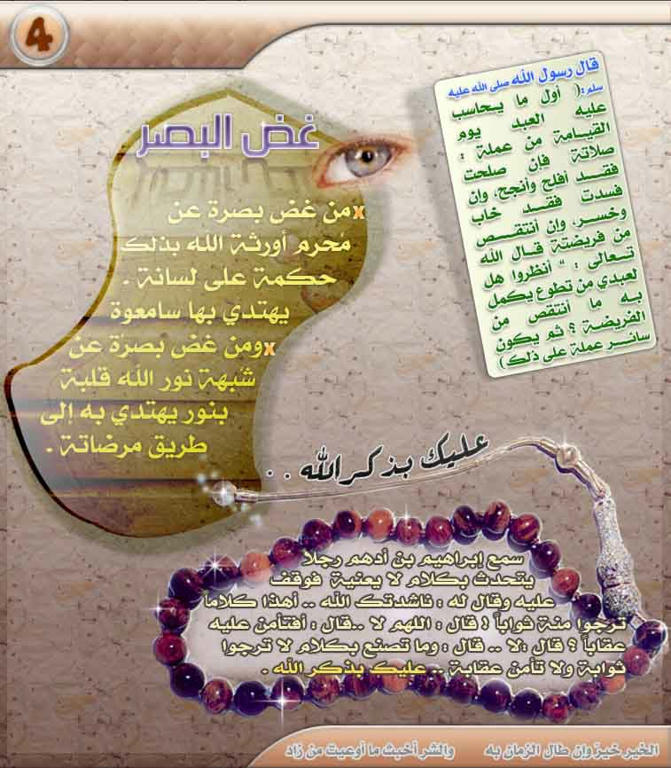 4
قال رسول الله صلى الله عليه
سلم :( أول ما يحاسب
عليه العبد يوم
القيامة من عملة :
صلاتة فإن صلحت
فقد أفلح وأنجح، وإن
فسدت فقد خاب
وخسر، وإن أنتقص
من فريضتة قال الله
تعالى : " أنظروا هل
لعبدي من تطوع يكمل
به ما أنتقص من
الفريضة ؟ ثم يكون
سائر عملة على ذلك)
غض البصر
x من غض بصرة عن
مُحرم أورثة الله بذلك
حكمة على لسانة .
يهتدي بها سامعوة
x ومن غض بصرَة عن
شُبهة نور الله قلبة
بنور يهتدي به إلى
طريق مرضاتة .
عليك بذكر الله . .
سمع إبراهيم بن أدهم رجلا
يتحدث بكلام لا يعنية فوقف
عليه وقال له : ناشدتك الله .. أهذا كلاماً
ترجوا منة ثواباً ؟ قال : اللهم لا ..قال : أفتأمن عليه
عقاباً ؟ قال :لا .. قال : وما تصنع بكلام لا ترجوا
ثوابة ولا تأمن عقابة .. عليك بذكر الله .
الخير خيرٌ وإن طال الزمان به والشر أخبث ما أوعيت من زاد